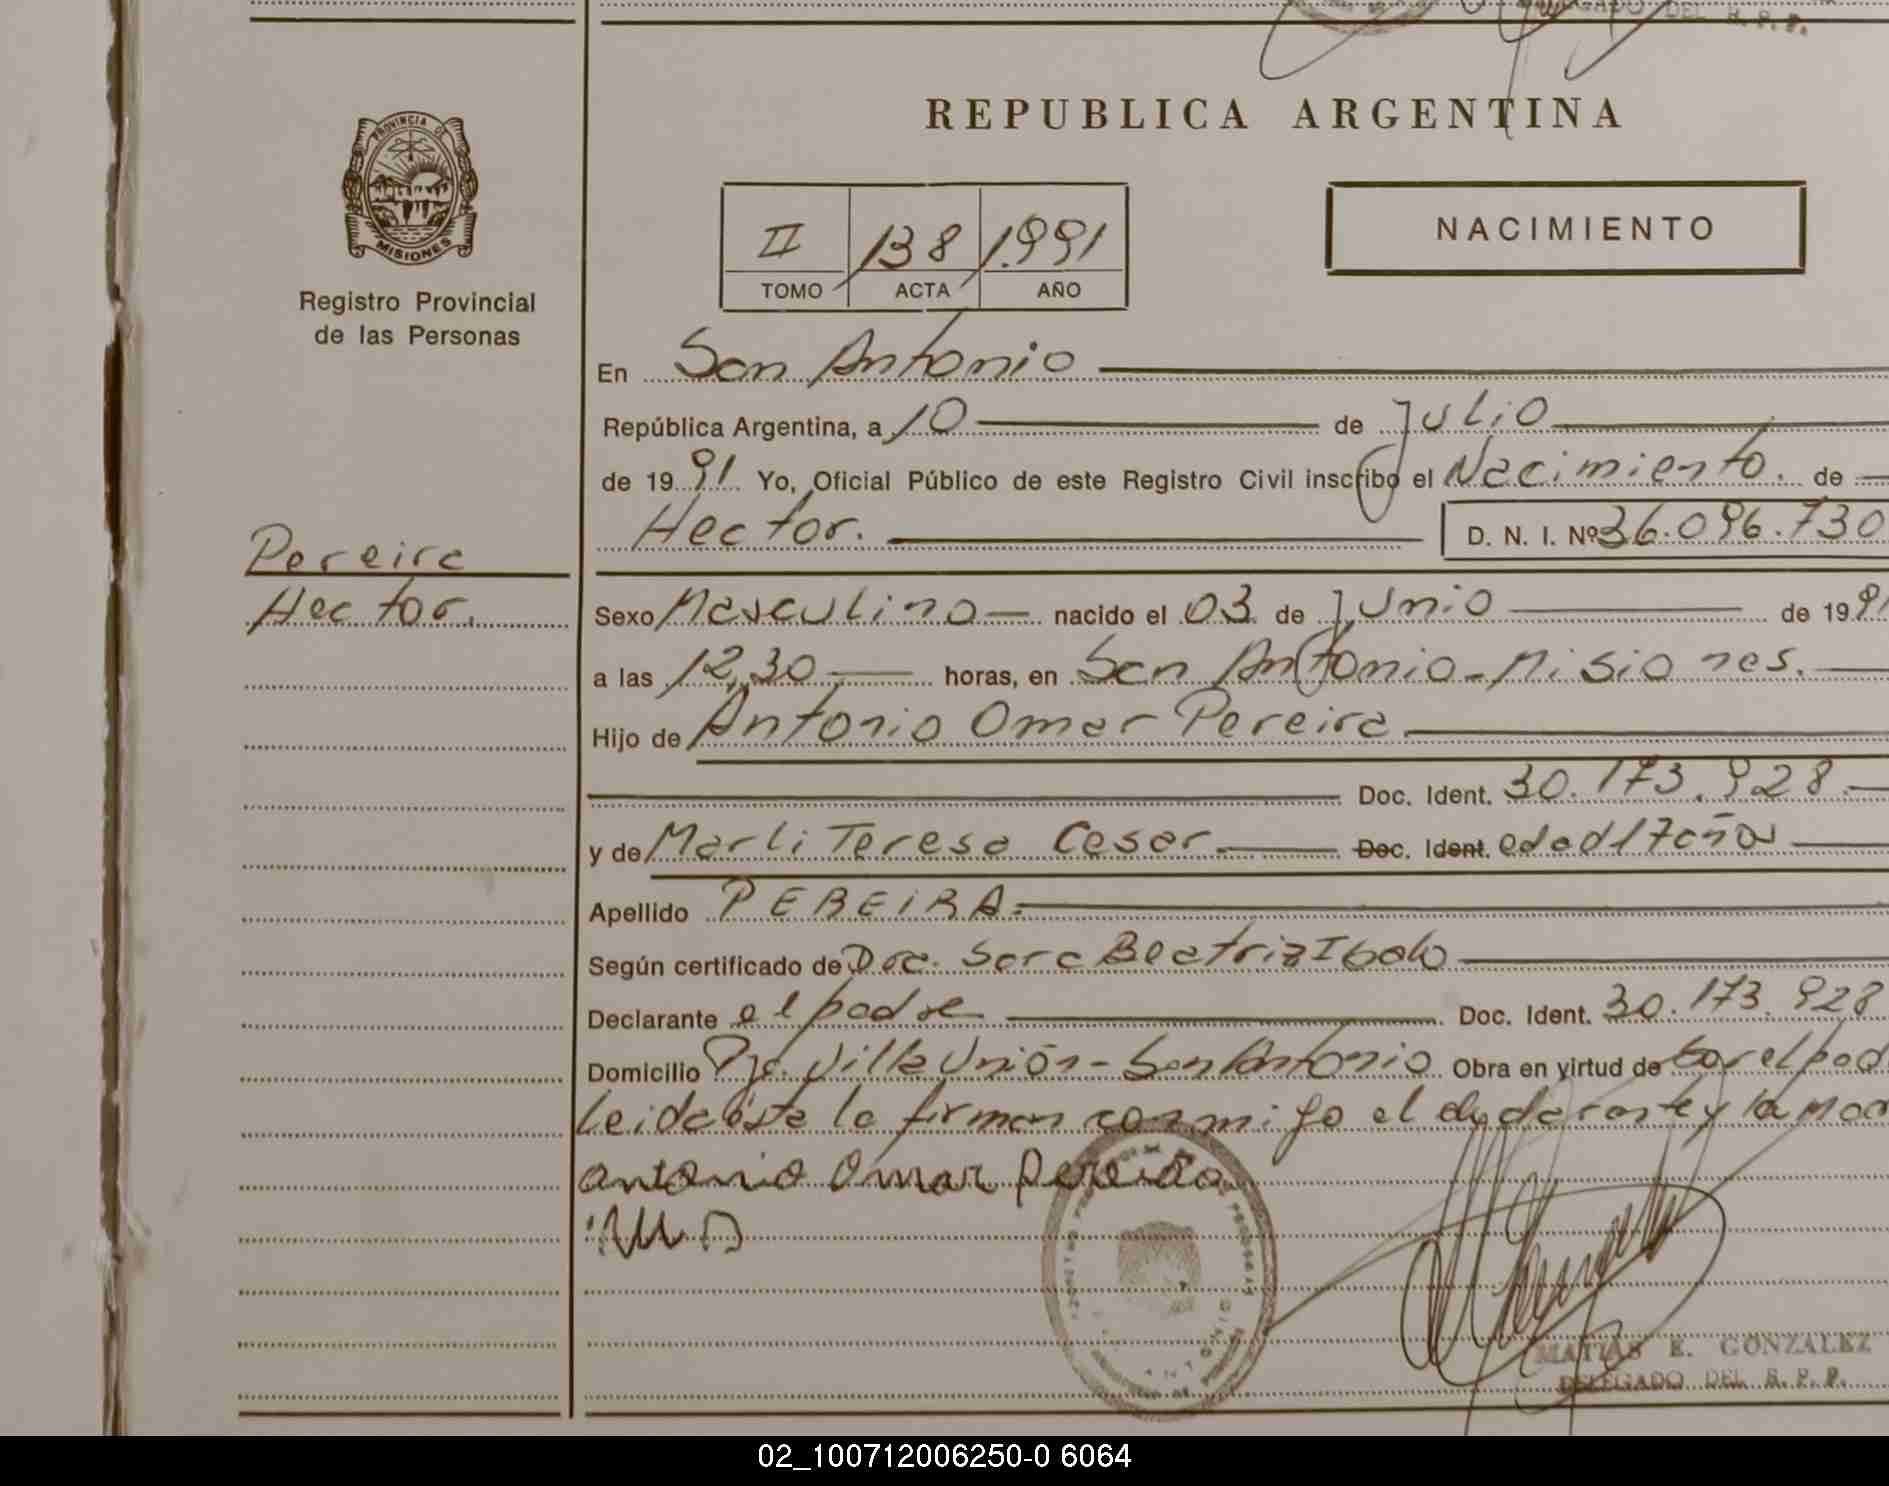 DELEGADO DEL R. P. P.
PROVINCIA DE
MISIONES
Registro Provincial
de las Personas
REPUBLICA ARGENTINA
II 138 1.991
TOMO ACTA AÑO
NACIMIENTO
En San Antonio
República Argentina, a 10 de Julio
de 1991 Yo, Oficial Público de este Registro Civil inscribo el Nacimiento. de
Hector. D. N. I. Nº 36.096.730
Pereira
Hector.
Sexo Masculino nacido el 03 de Junio de 1991
a las 12,30 horas, en San Antonio - Misiones.
Hijo de Antonio Omar Pereira
Doc. Ident. 30.173.928
y de Marli Teresa Cesar Doc. Ident. edad 17 años
Apellido PEREIRA
Según certificado de Dra. Sara Beatriz Ibalo
Declarante el padre Doc. Ident. 30.173.928
Domicilio Pje. Villa Unión - San Antonio Obra en virtud de ser el pad
Leida ésta la firman conmigo el declarante y la mad
antonio Omar Pereira
MATIAS E. GONZALEZ
DELEGADO DEL R. P. P.
02_100712006250-0 6064